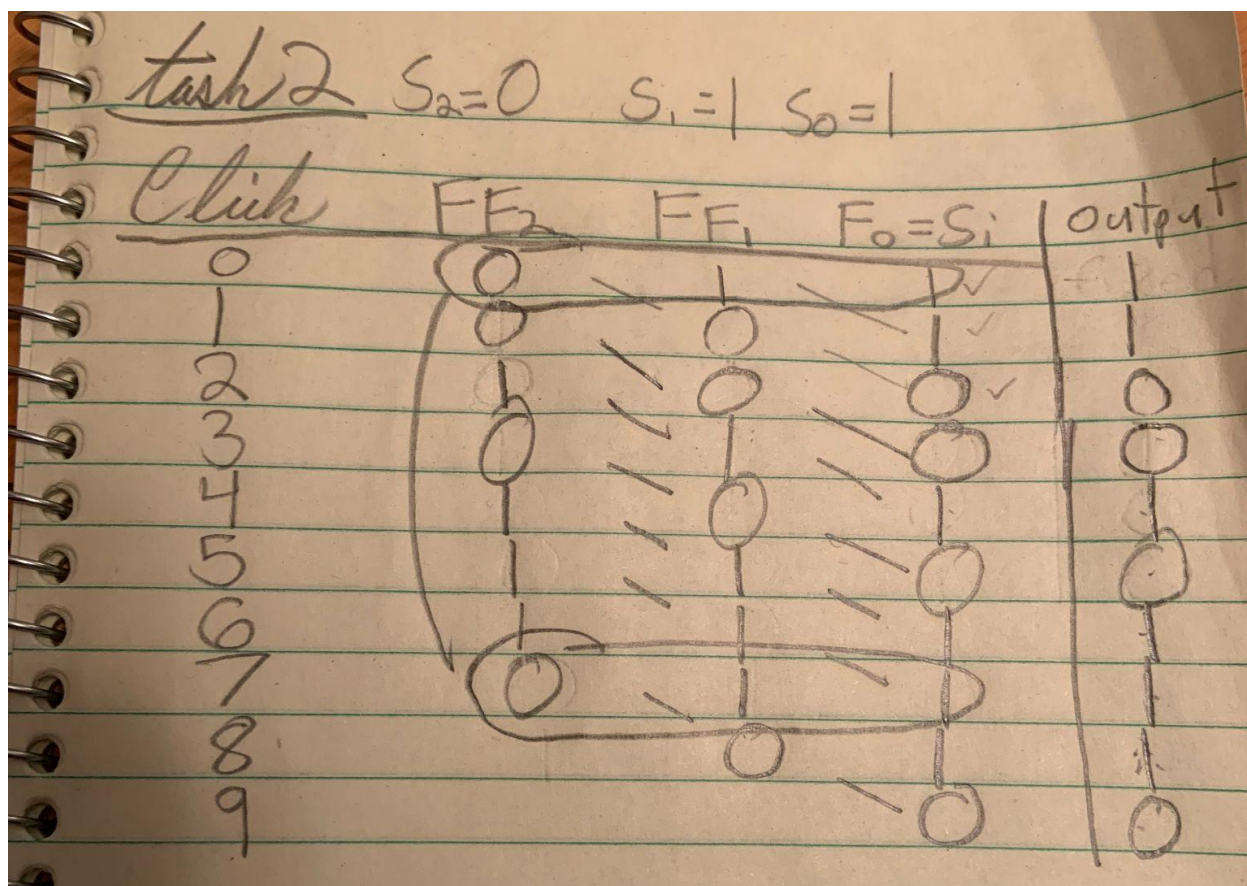 task 2 S₂=0 S₁=1 S₀=1
Click FF₂ FF₁ F₀=Si output
0 0 1 1 ✓ 1
1 0 0 1 ✓ 1
2 1 0 0 ✓ 0
3 0 1 0 0
4 1 0 1 1
5 1 1 0 0
6 1 1 1 1
7 0 1 1 1
8 0 1 1
9 0 0